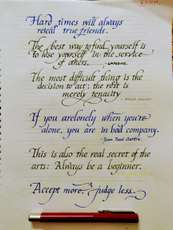 Hard times will always
reveal true friends.
The best way to find yourself is
to lose yourself in the service
of others.
The most difficult thing is the
decision to act; the rest is
merely tenacity
If you are lonely when you're
alone, you are in bad company.
Jean Paul Sartre
This is also the real secret of the
arts: Always be a beginner.
Accept more. Judge less.